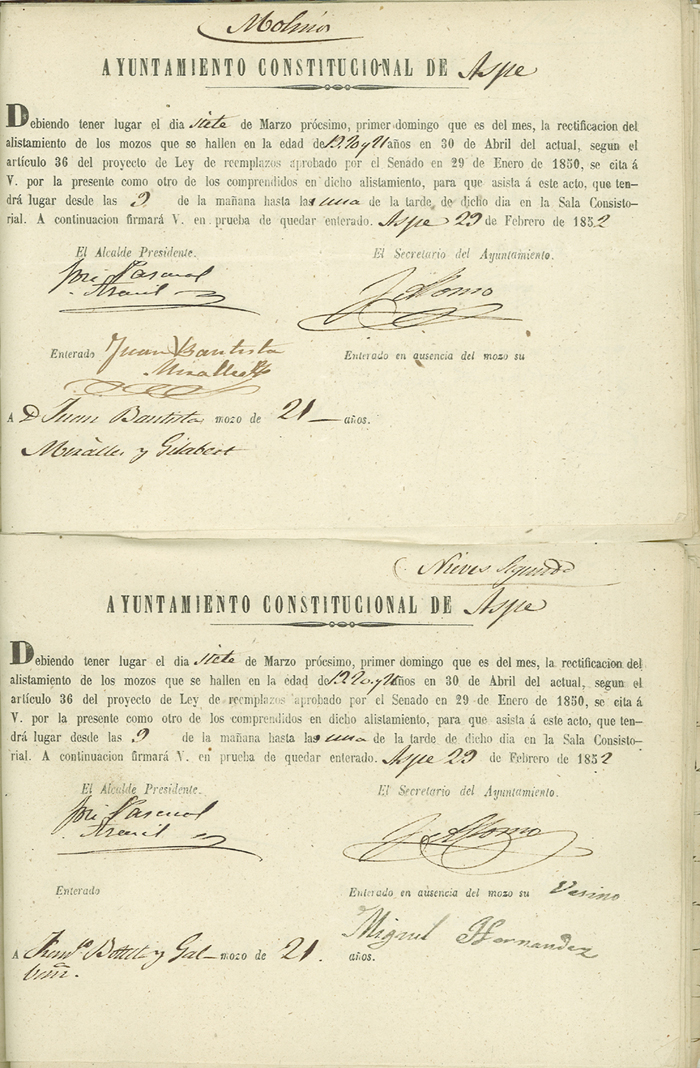 Molinos
AYUNTAMIENTO CONSTITUCIONAL DE Aspe
Debiendo tener lugar el dia siete de Marzo prócsimo, primer domingo que es del mes, la rectificacion del
alistamiento de los mozos que se hallen en la edad de 19 20 y 21 años en 30 de Abril del actual, segun el
artículo 36 del proyecto de Ley de reemplazos aprobado por el Senado en 29 de Enero de 1850, se cita á
V. por la presente como otro de los comprendidos en dicho alistamiento, para que asista á este acto, que ten-
drá lugar desde las 9 de la mañana hasta las una de la tarde de dicho dia en la Sala Consisto-
rial. A continuacion firmará V. en prueba de quedar enterado. Aspe 29 de Febrero de 1852
El Alcalde Presidente. El Secretario del Ayuntamiento.
José Pascual
Alonso
Enterado Juan Bautista Enterado en ausencia del mozo su
Miralles
A D Juan Bautista mozo de 21 años.
Miralles y Gilabert
Nieves Segunda
AYUNTAMIENTO CONSTITUCIONAL DE Aspe
Debiendo tener lugar el dia siete de Marzo prócsimo, primer domingo que es del mes, la rectificacion del
alistamiento de los mozos que se hallen en la edad de 19 20 y 21 años en 30 de Abril del actual, segun el
artículo 36 del proyecto de Ley de reemplazos aprobado por el Senado en 29 de Enero de 1850, se cita á
V. por la presente como otro de los comprendidos en dicho alistamiento, para que asista á este acto, que ten-
drá lugar desde las 9 de la mañana hasta las una de la tarde de dicho dia en la Sala Consisto-
rial. A continuacion firmará V. en prueba de quedar enterado. Aspe 29 de Febrero de 1852
El Alcalde Presidente. El Secretario del Ayuntamiento.
José Pascual
Alonso
Enterado Enterado en ausencia del mozo su Vesino
Miguel Hernandez
A Botella y mozo de 21. años.